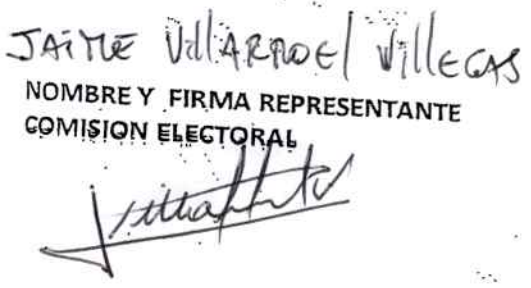 JAIME VillARROEl VillEGAS
NOMBRE Y FIRMA REPRESENTANTE
COMISION ELECTORAL